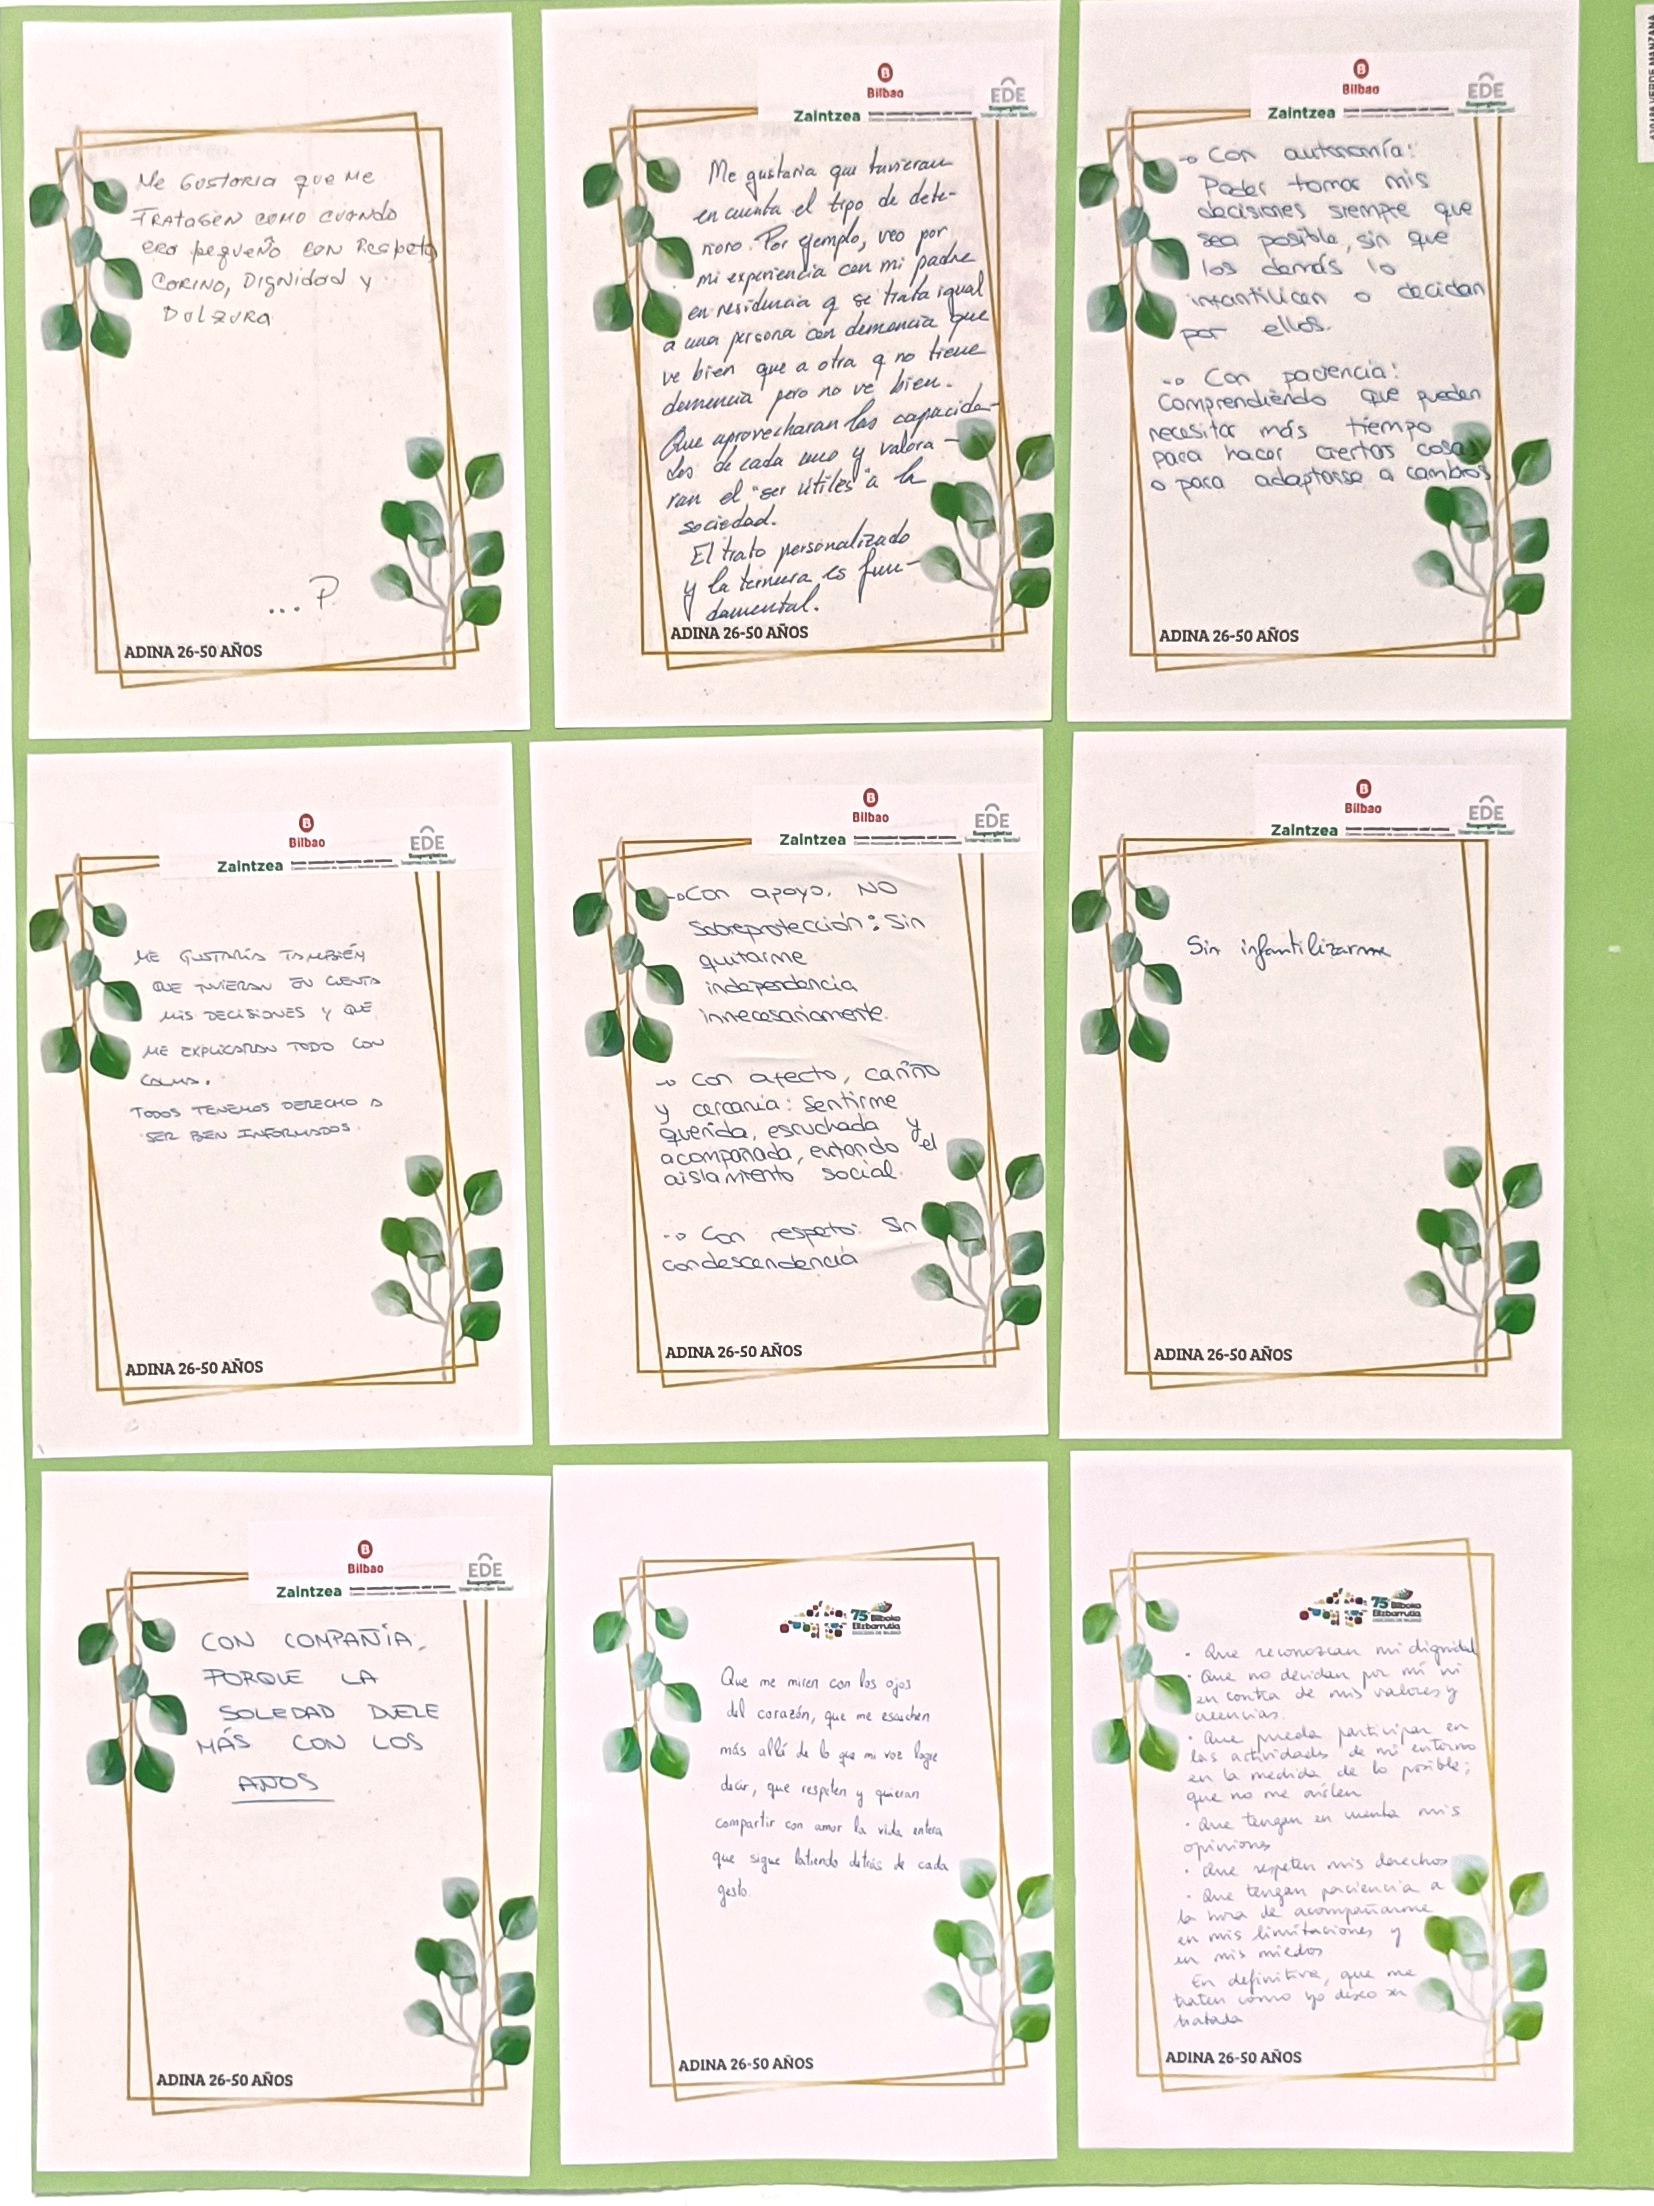 Me Gustaria que Me
TRATASEN COMO CUANDO
era pequeño con Respeto
CARIÑO, Dignidad y
Dulzura
... P.
ADINA 26-50 AÑOS
Bilbao
EDE
Zaintzea
Me gustaria que tuvieran
en cuenta el tipo de dete-
rioro. Por ejemplo, veo por
mi experiencia con mi padre
en residencia q se trata igual
a una persona con demencia que
ve bien que a otra q no tiene
demencia pero no ve bien.
Que aprovecharan las capacida-
des de cada uno y valora-
ran el "ser útiles" a la
sociedad.
El trato personalizado
y la ternura es fun-
damental.
ADINA 26-50 AÑOS
Bilbao
EDE
Zaintzea
Con autonomía:
Poder tomar mis
decisiones siempre que
sea posible, sin que
los demás lo
infantilicen o decidan
por ellos.
Con paciencia:
Comprendiendo que pueden
necesitar más tiempo
para hacer ciertas cosas
o para adaptarse a cambios
ADINA 26-50 AÑOS
Bilbao
EDE
Zaintzea
ME GUSTARÍA TAMBIÉN
QUE TUVIERAN EN CUENTA
MIS DECISIONES Y QUE
ME EXPLICARAN TODO CON
CALMA.
TODOS TENEMOS DERECHO A
SER BIEN INFORMADOS.
ADINA 26-50 AÑOS
Bilbao
EDE
Zaintzea
Con apoyo, NO
Sobreprotección: Sin
quitarme
independencia
innecesariamente.
Con afecto, cariño
y cercanía: Sentirme
querida, escuchada y
acompañada, evitando el
aislamiento social.
Con respeto: Sin
condescendencia
ADINA 26-50 AÑOS
Bilbao
EDE
Zaintzea
Sin infantilizarme
ADINA 26-50 AÑOS
Bilbao
EDE
Zaintzea
CON COMPAÑÍA,
PORQUE LA
SOLEDAD DUELE
MÁS CON LOS
AÑOS
ADINA 26-50 AÑOS
75 Bilboko
Elizbarrutia
Que me miren con los ojos
del corazón, que me escuchen
más allá de lo que mi voz logre
decir, que respeten y quieran
compartir con amor la vida entera
que sigue latiendo detrás de cada
gesto.
ADINA 26-50 AÑOS
75 Bilboko
Elizbarrutia
· Que reconozcan mi dignidad
· Que no decidan por mí ni
en contra de mis valores y
creencias.
· Que pueda participar en
las actividades de mi entorno
en la medida de lo posible;
que no me aíslen
· Que tengan en cuenta mis
opiniones
· Que respeten mis derechos
· Que tengan paciencia a
la hora de acompañarme
en mis limitaciones y
en mis miedos
En definitiva, que me
traten como yo deseo ser
tratada
ADINA 26-50 AÑOS